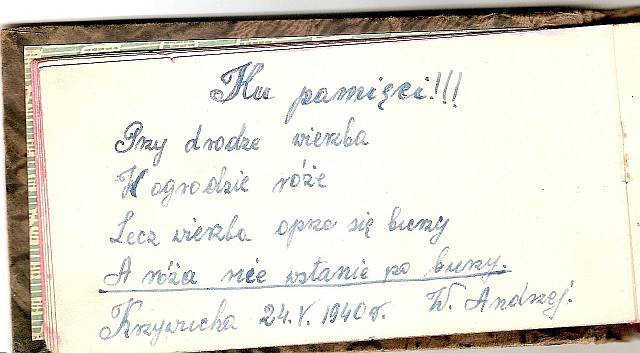 Ku pamięci!!!
Przy drodze wierzba
W ogrodzie róże
Lecz wierzba opra się burzy
A róża nie wstanie po burzy.
Krzywucha 24.V. 1940r. W. Andrzej.